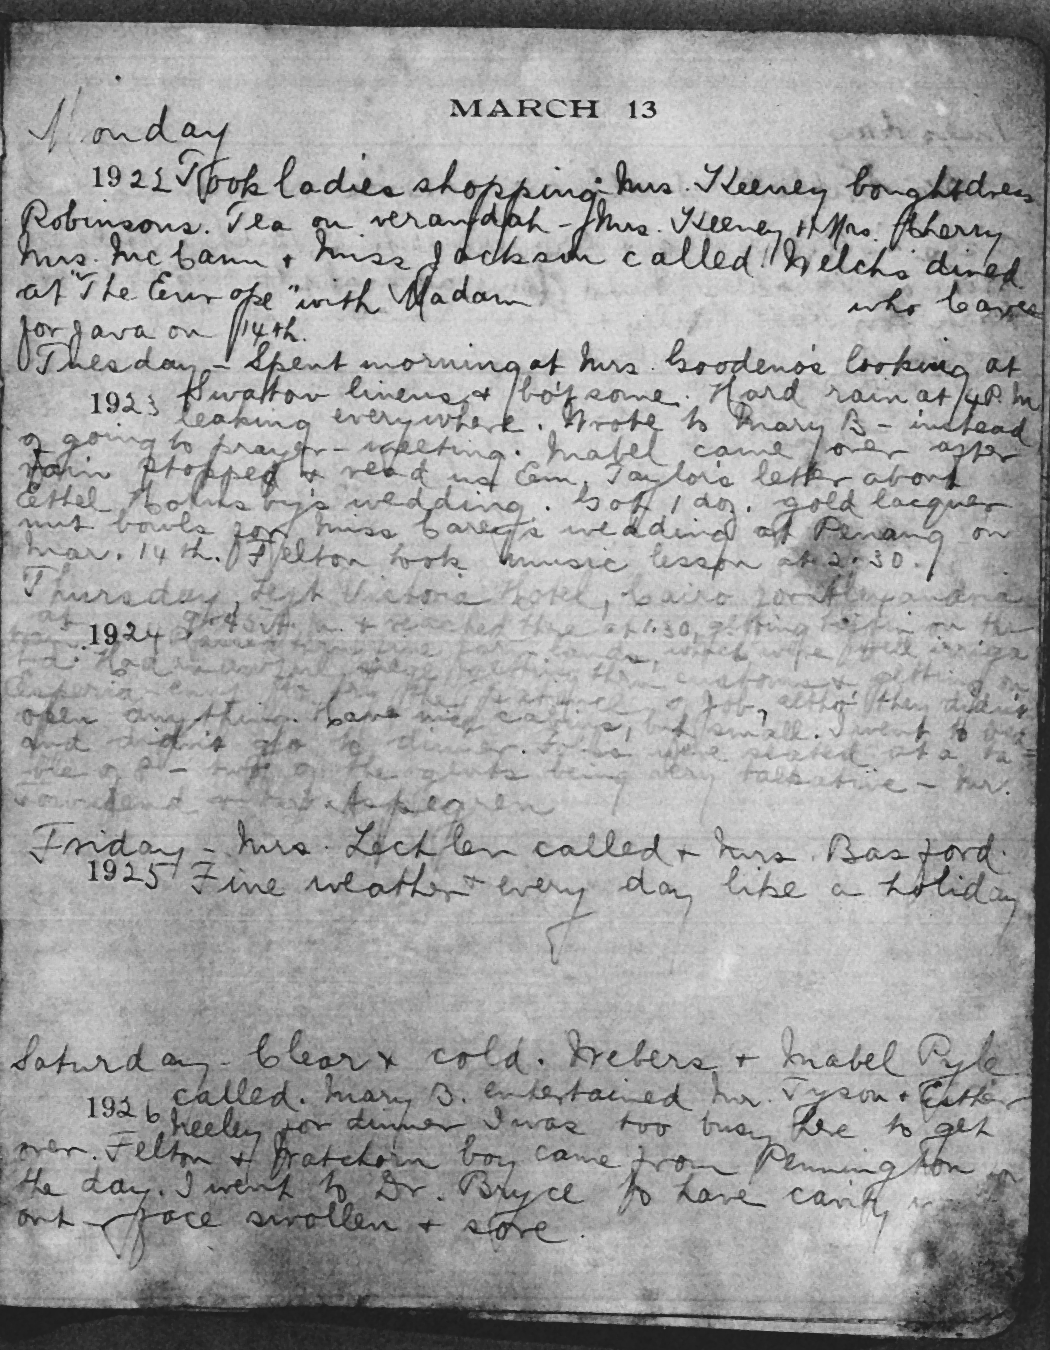 MARCH 13
Monday
1922 Took ladies shopping. Mrs. Keeney bought dress
Robinsons. Tea on verandah - Mrs. Keeney & Mrs. Cherry
Mrs. McCann & Miss Jackson called. Welchs dined
at "The Europe" with Madam who leaves
for Java on 14th.
Tuesday - Spent morning at Mrs. Goodeno's looking at
1923 Swatow linens & bo't some. Hard rain at 4 P.M.
leaking everywhere. Wrote to Mary B - instead
of going to prayer - meeting. Mabel came over after
rain stopped & read us Em. Taylor's letter about
Ethel Hornsby's wedding. Got 1 doz. gold lacquer
nut bowls for Miss Carey's wedding at Penang on
Mar. 14th. Felton took music lesson at 2:30.
Thursday, Left Victoria Hotel, Cairo for Alexandria
at & reached there at 1:30, getting on the
1924 farm lands, which were irriga
ted. Had getting thru customs & getting on
Esperia - to try the patience of Job, altho' they didn't
open anything. Have nice cabins, but small. I went to bed
and didn't go to dinner. Folks were seated at a ta=
ble of 8 - two of the gents being very talkative - Mr.
Townsend Aspegren
Friday - Mrs. Lechlen called & Mrs. Basford.
1925 Fine weather & every day like a holiday
Saturday - Clear & cold. Webers & Mabel Pyle
called. Mary B. entertained Mr. Tyson & Esther
1926 Neeley for dinner I was too busy here to get
over. Felton & boy came from Pennington
the day. I went to Dr. Bryce to have cavity
out - face swollen & sore.